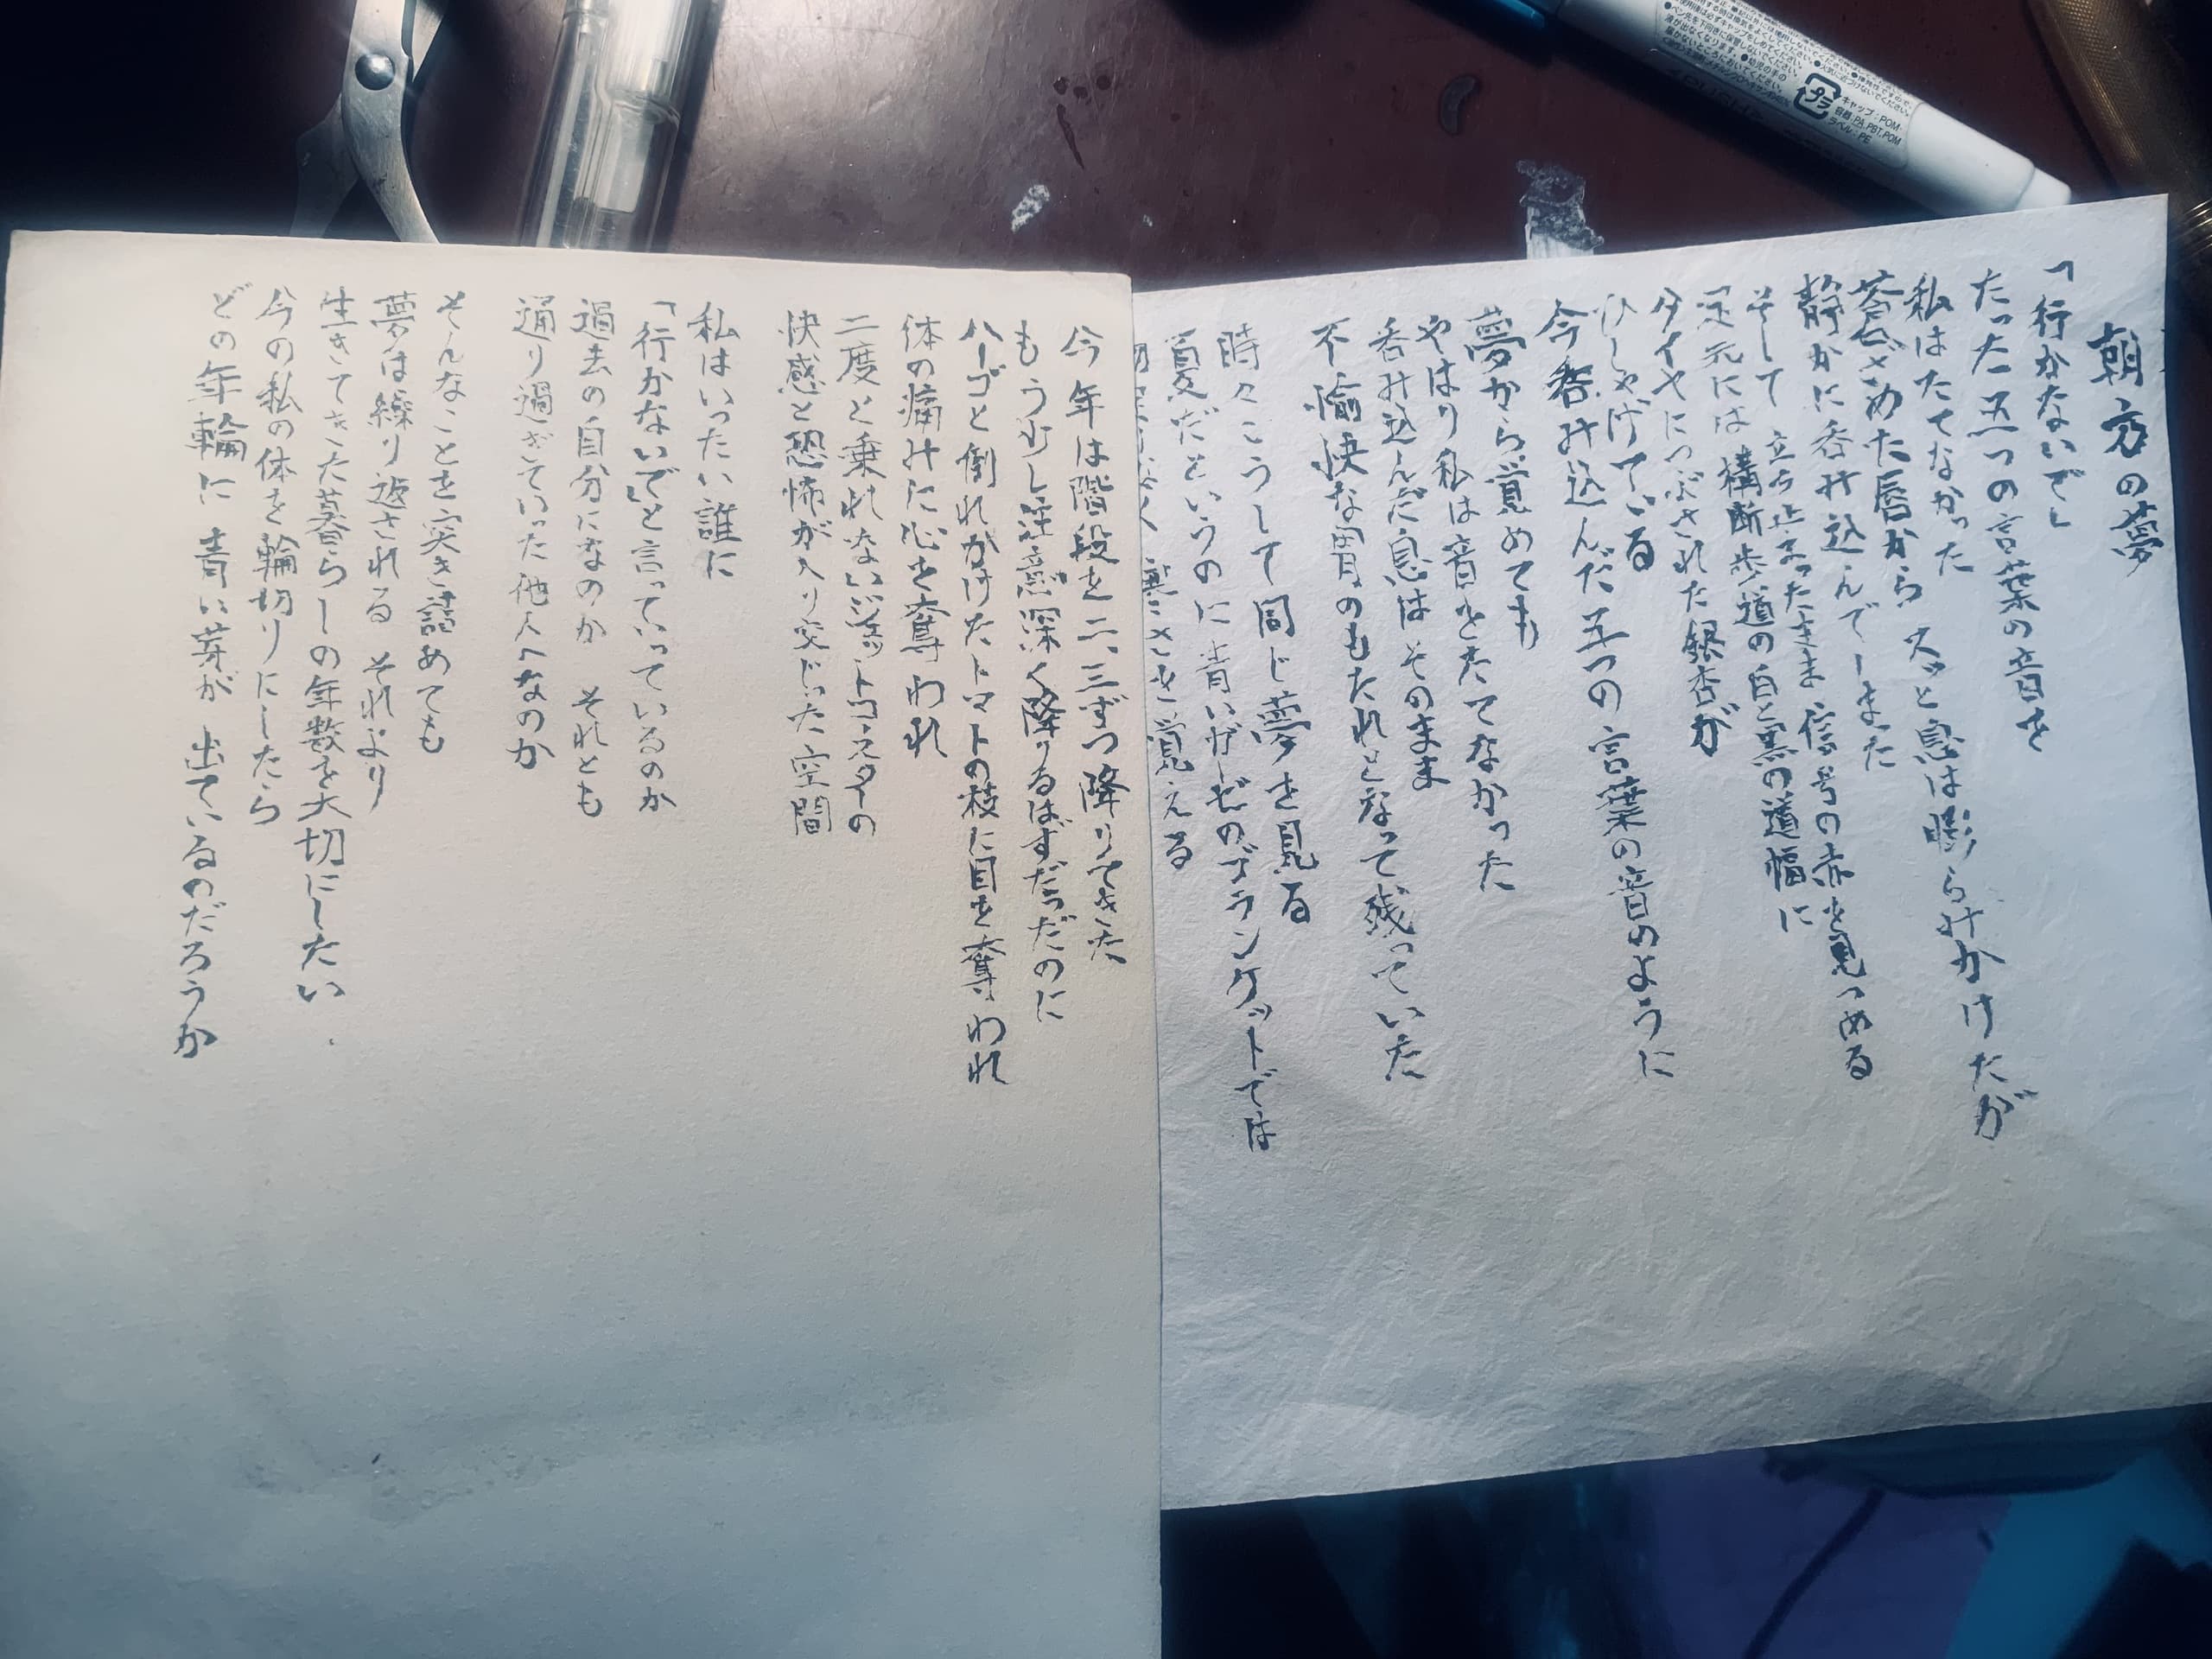 朝方の夢
「行かないで」
たった五つの言葉の音を
私はたてなかった
蒼ざめた唇から スッと息は膨らみかけたが
静かに呑み込んでしまった
そして 立ち止まったまま 信号の赤を見つめる
足元には 横断歩道の白と黒の道幅に
タイヤにつぶされた銀杏が
ひしゃげている
今呑み込んだ五つの言葉の音のように
夢から覚めても
やはり私は音をたてなかった
呑み込んだ息は そのまま
不愉快な胃のもたれとなって残っていた
時々こうして同じ夢を見る
夏だというのに青いガーゼのブランケットでは
寒ささえ覚える
今年は階段を二、三ずつ降りてきた
もう少し注意深く降りるはずだったのに
ハーゴと倒れかけたトマトの枝に目を奪われ
体の痛みに心を奪われ
二度と乗れないジェットコースターの
快感と恐怖が入り交じった空間
私はいったい誰に
「行かないで」と言っているのか
過去の自分になのか それとも
通り過ぎていった他人へなのか
そんなことを突き詰めても
夢は繰り返される それより
生きてきた暮らしの年数を大切にしたい
今の私の体を輪切りにしたら
どの年輪に 青い芽が 出ているのだろうか
キャップ：POM
容器：PA,PBT,POM
ラベル：PE
プラ